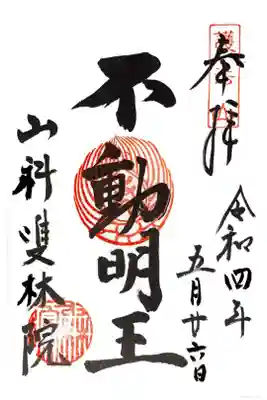 奉拝
令和四年
五月廿六日
不動明王
山科雙林院